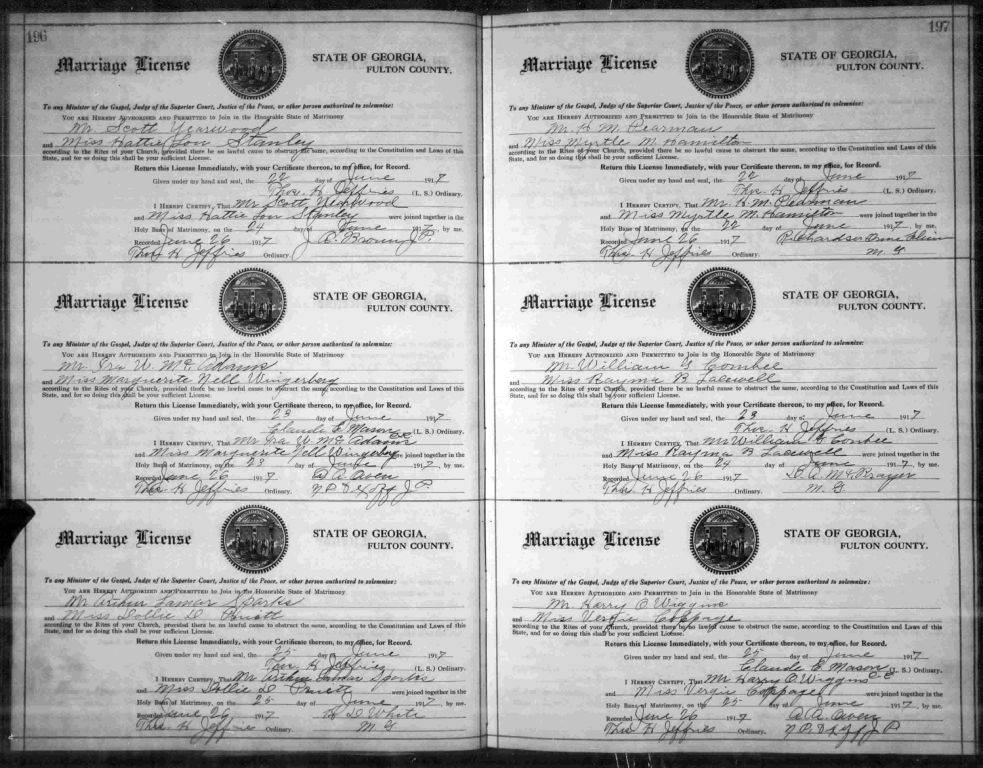 196
Marriage License
STATE OF GEORGIA,
FULTON COUNTY.
To any Minister of the Gospel, Judge of the Superior Court, Justice of the Peace, or other person authorized to solemnize:
YOU ARE HEREBY AUTHORIZED AND PERMITTED to Join in the Honorable State of Matrimony
Mr Scott Yearwood
and Miss Hattie Lou Stanley
according to the Rites of your Church, provided there be no lawful cause to obstruct the same, according to the Constitution and Laws of this
State, and for so doing this shall be your sufficient License.
Return this License Immediately, with your Certificate thereon, to my office, for Record.
Given under my hand and seal, the 22 day of June 1917
Thos. H Jeffries (L. S.) Ordinary.
I HEREBY CERTIFY, That Mr Scott Yearwood
and Miss Hattie Lou Stanley were joined together in the
Holy Bans of Matrimony, on the 24 day of June 1917, by me.
Recorded June 26 1917 J. P.
Thos H Jeffries Ordinary.
Marriage License
STATE OF GEORGIA,
FULTON COUNTY.
To any Minister of the Gospel, Judge of the Superior Court, Justice of the Peace, or other person authorized to solemnize:
YOU ARE HEREBY AUTHORIZED AND PERMITTED to Join in the Honorable State of Matrimony
Mr Ira W. McAdams
and Miss Marguerite Nell Wingerbey
according to the Rites of your Church, provided there be no lawful cause to obstruct the same, according to the Constitution and Laws of this
State, and for so doing this shall be your sufficient License.
Return this License Immediately, with your Certificate thereon, to my office, for Record.
Given under my hand and seal, the 23 day of June 1917
Claude E Mason (L. S.) Ordinary.
I HEREBY CERTIFY, That Mr Ira W. McAdams
and Miss Marguerite Nell Wingerbey were joined together in the
Holy Bans of Matrimony, on the 23 day of June 1917, by me.
Recorded June 26 1917 A A Owen
Thos H Jeffries Ordinary. N P & J P
Marriage License
STATE OF GEORGIA,
FULTON COUNTY.
To any Minister of the Gospel, Judge of the Superior Court, Justice of the Peace, or other person authorized to solemnize:
YOU ARE HEREBY AUTHORIZED AND PERMITTED to Join in the Honorable State of Matrimony
Mr Arthur Lamar Sparks
and Miss Dollie D Pruett
according to the Rites of your Church, provided there be no lawful cause to obstruct the same, according to the Constitution and Laws of this
State, and for so doing this shall be your sufficient License.
Return this License Immediately, with your Certificate thereon, to my office, for Record.
Given under my hand and seal, the 25 day of June 1917
Thos H Jeffries (L. S.) Ordinary.
I HEREBY CERTIFY, That Mr Arthur Lamar Sparks
and Miss Dollie D Pruett were joined together in the
Holy Bans of Matrimony, on the 25 day of June 1917, by me.
Recorded June 26 1917 H D White
Thos H Jeffries Ordinary. M G
197
Marriage License
STATE OF GEORGIA,
FULTON COUNTY.
To any Minister of the Gospel, Judge of the Superior Court, Justice of the Peace, or other person authorized to solemnize:
YOU ARE HEREBY AUTHORIZED AND PERMITTED to Join in the Honorable State of Matrimony
Mr. H M. Pearman
and Miss Myrtle M. Hamilton
according to the Rites of your Church, provided there be no lawful cause to obstruct the same, according to the Constitution and Laws of this
State, and for so doing this shall be your sufficient License.
Return this License Immediately, with your Certificate thereon, to my office, for Record.
Given under my hand and seal, the 22 day of June 1917
Thos. H Jeffries (L. S.) Ordinary.
I HEREBY CERTIFY, That Mr. H. M. Pearman
and Miss Myrtle M. Hamilton were joined together in the
Holy Bans of Matrimony, on the 22 day of June 1917, by me.
Recorded June 26 1917
Thos H Jeffries Ordinary. M. G
Marriage License
STATE OF GEORGIA,
FULTON COUNTY.
To any Minister of the Gospel, Judge of the Superior Court, Justice of the Peace, or other person authorized to solemnize:
YOU ARE HEREBY AUTHORIZED AND PERMITTED to Join in the Honorable State of Matrimony
Mr William G Combee
and Miss Rayma B Lasewell
according to the Rites of your Church, provided there be no lawful cause to obstruct the same, according to the Constitution and Laws of this
State, and for so doing this shall be your sufficient License.
Return this License Immediately, with your Certificate thereon, to my office, for Record.
Given under my hand and seal, the 23 day of June 1917
Thos. H Jeffries (L. S.) Ordinary.
I HEREBY CERTIFY, That Mr William G Combee
and Miss Rayma B Lasewell were joined together in the
Holy Bans of Matrimony, on the 24 day of June 1917, by me.
Recorded June 26 1917 D. A. McBrayer
Thos H Jeffries Ordinary. M. G
Marriage License
STATE OF GEORGIA,
FULTON COUNTY.
To any Minister of the Gospel, Judge of the Superior Court, Justice of the Peace, or other person authorized to solemnize:
YOU ARE HEREBY AUTHORIZED AND PERMITTED to Join in the Honorable State of Matrimony
Mr Harry O Wiggins
and Miss Vergie Coppage
according to the Rites of your Church, provided there be no lawful cause to obstruct the same, according to the Constitution and Laws of this
State, and for so doing this shall be your sufficient License.
Return this License Immediately, with your Certificate thereon, to my office, for Record.
Given under my hand and seal, the 25 day of June 1917
Claude E. Mason (L. S.) Ordinary.
I HEREBY CERTIFY, That Mr Harry O Wiggins
and Miss Vergie Coppage were joined together in the
Holy Bans of Matrimony, on the 25 day of June 1917, by me.
Recorded June 26 1917 A. A. Owen
Thos H Jeffries Ordinary. N P & J P